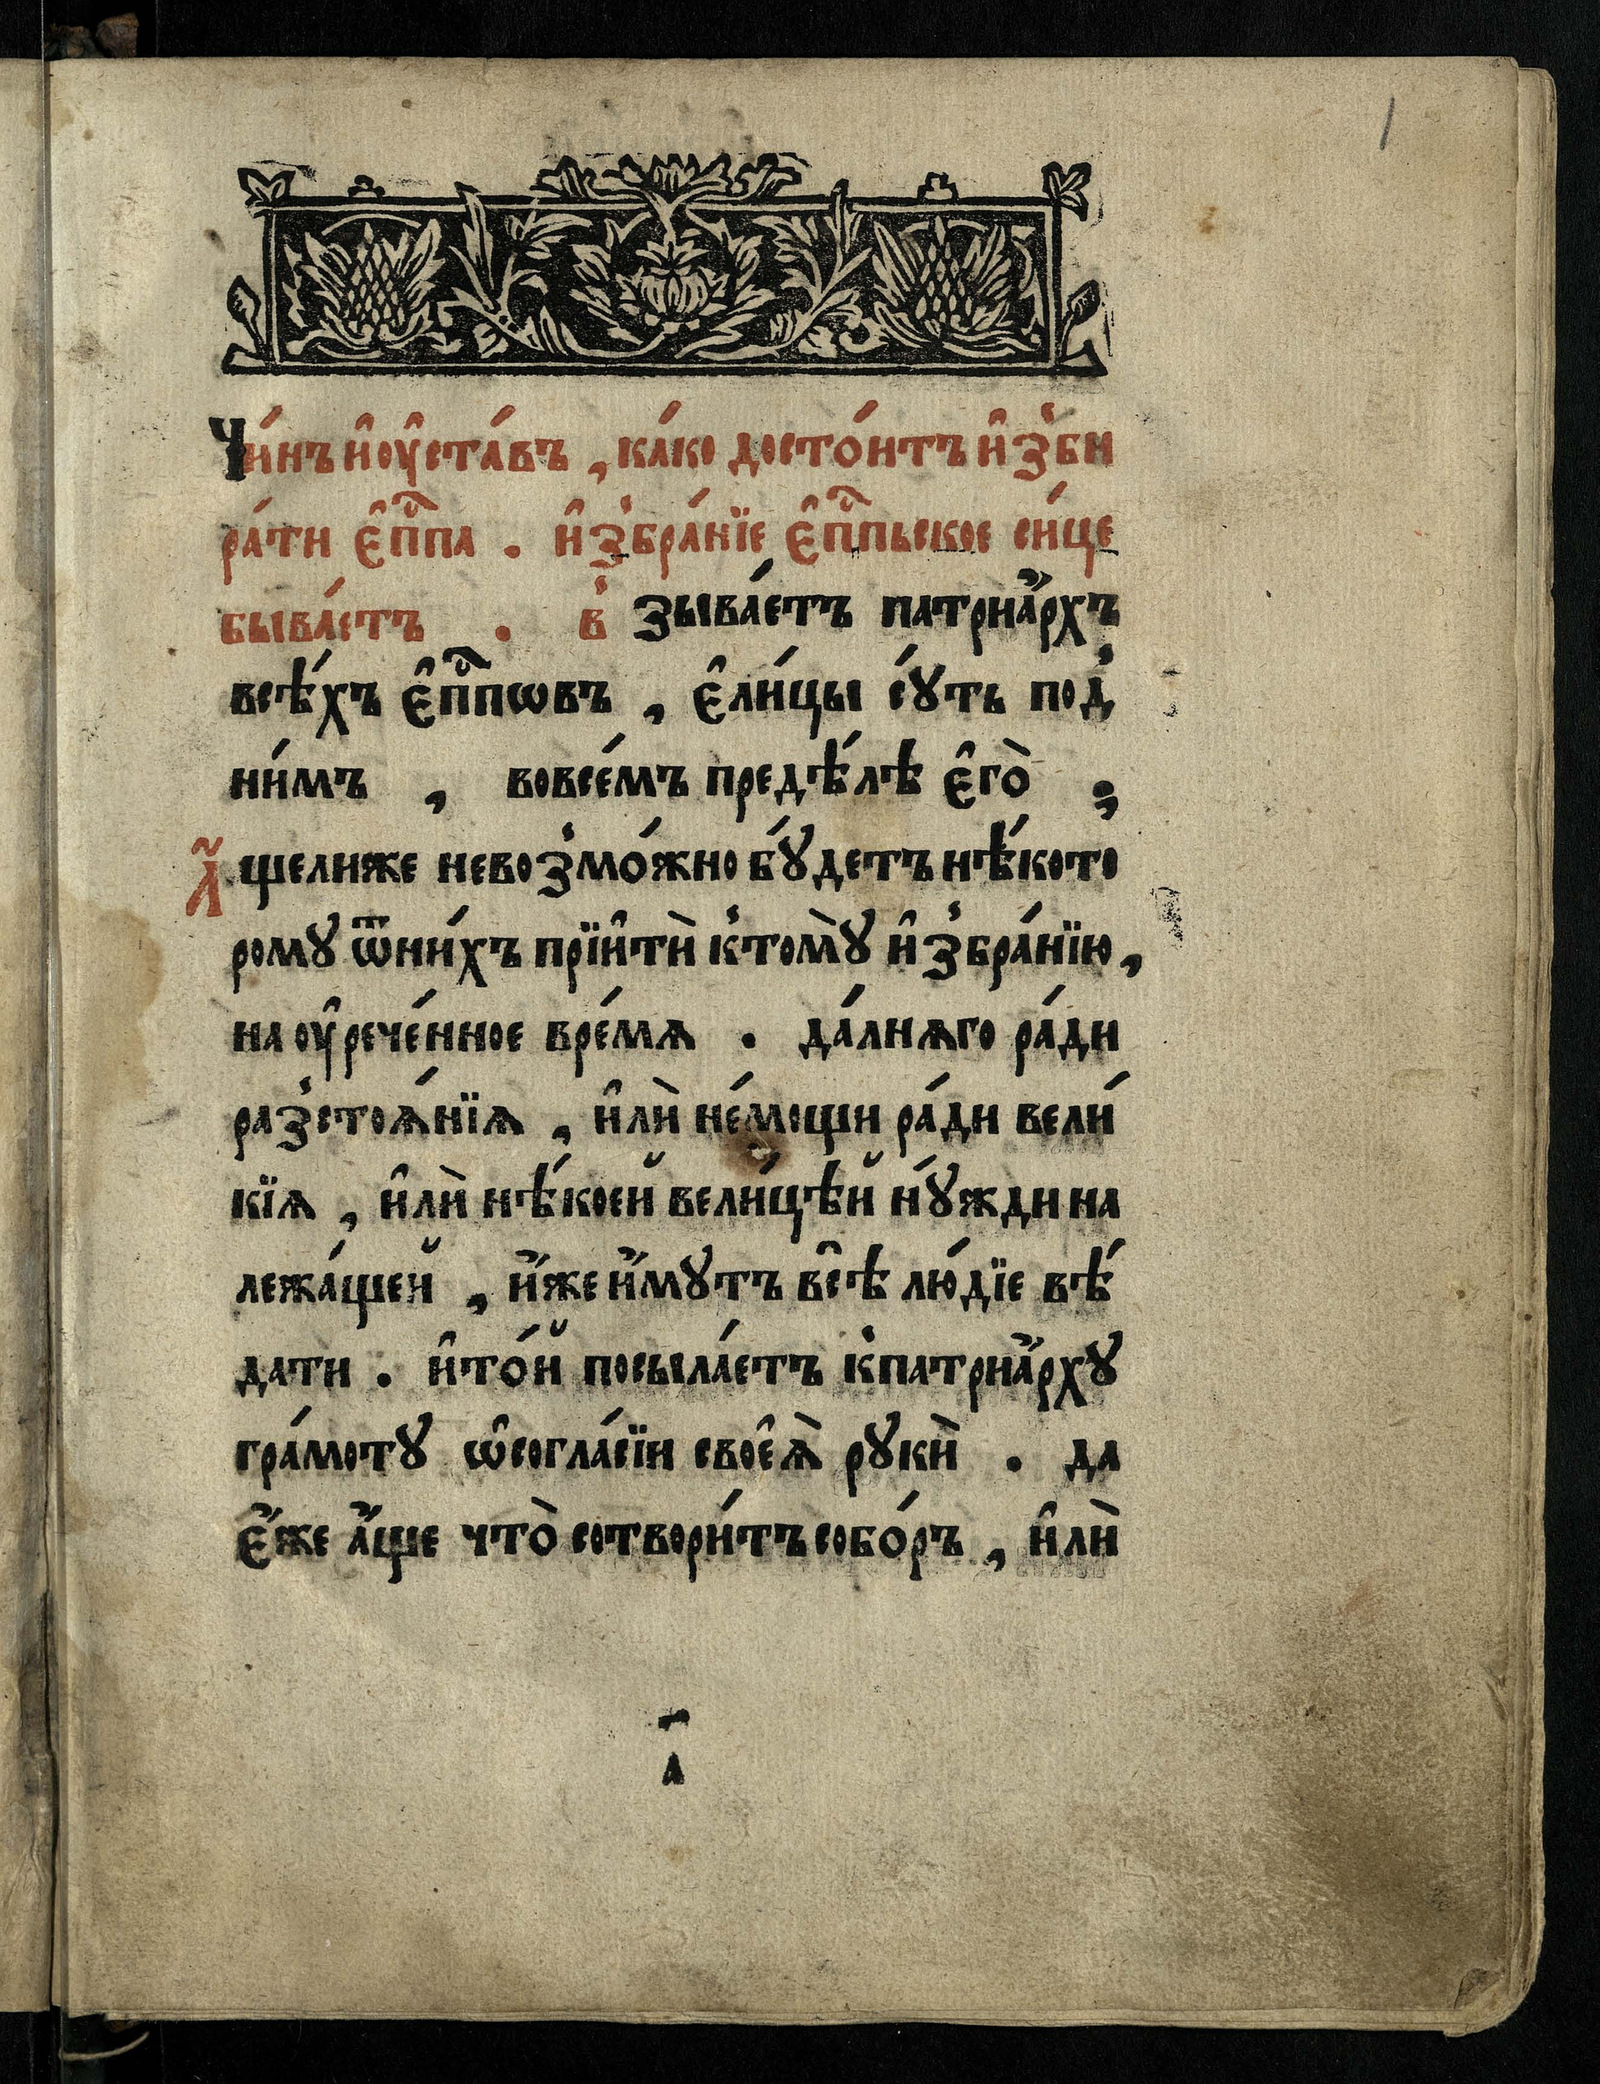 1
Чи́нъ и҆оу҆ста́въ , ка́ко досто́итъ и҆з̾би
ра́ти є҆пⷭ҇па . и҆з̾бра́нїе є҆пⷭ҇пьское си́це
быва́етъ . в̾зыва́етъ патриа́рхъ
всѣ́хъ є҆пⷭ҇пѡвъ , є҆ли́цы сꙋ́ть под̾
ни́мъ , вовсе́мъ предѣ́лѣ є҆го̀ ;
А҆҃щелиже невоз̾мо́жно бꙋ́детъ нѣ́кото
ромꙋ ѿни́хъ прїи҆тѝ к̾томꙋ̀ и҆з̾бра́нїю ,
на оу҆рече́нное вре́мѧ . да́лнѧго ра́ди
раз̾стоѧ́нїѧ , и҆лѝ не́мощи ра́ди вели́
кїѧ , и҆лѝ нѣ́коей вели́цѣй нꙋ́жди на
лежа́щей , и҆́же и҆́мꙋтъ всѣ̑ лю́дїе вѣ́
дати . и҆то́й посыла́етъ к̾патриа́рхꙋ
гра́мотꙋ ѡ҆согла́сїи своеѧ̀ рꙋкѝ . да
є҆́же а҆́ще что̀ сотвори́тъ собо́ръ , и҆лѝ
а